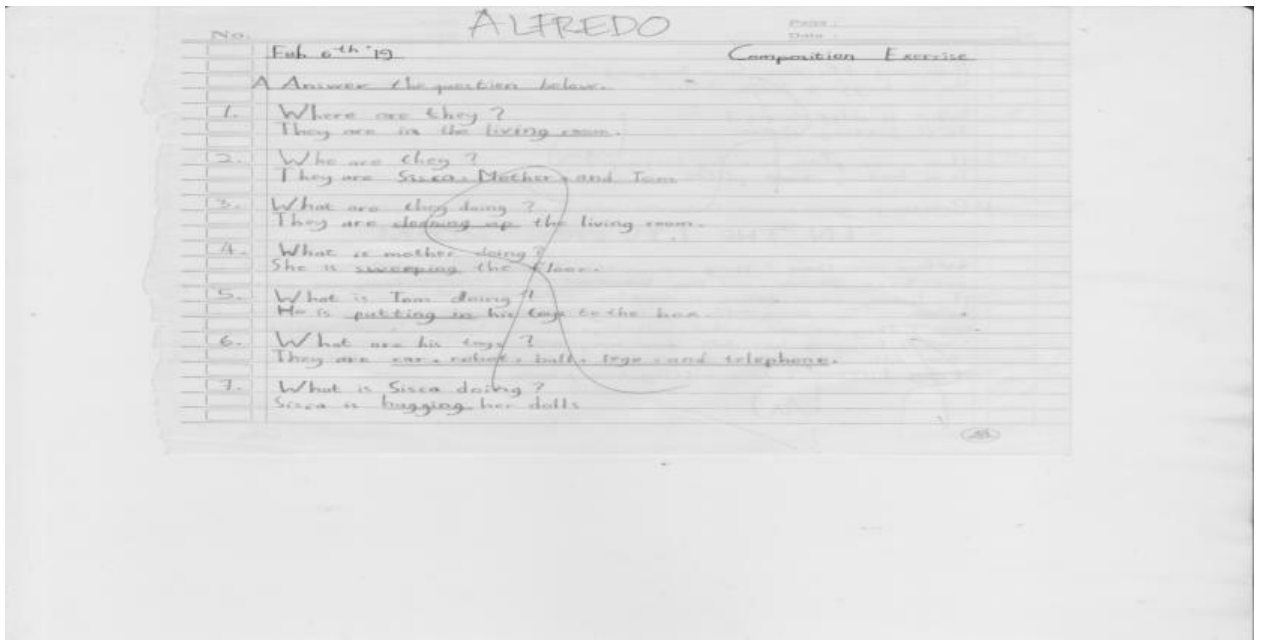 ALFREDO
No.
Date :
Feb 6th '19 Composition Exercise
A Answer the question below.
1. Where are they ?
They are in the living room.
2. Who are they ?
They are Sisca, Mother, and Tom
3. What are they doing ?
They are cleaning up the living room.
4. What is mother doing?
She is sweeping the floor.
5. What is Tom doing ?
He is putting in his toys to the box.
6. What are his toys ?
They are car, robot, ball, lego, and telephone.
7. What is Sisca doing ?
Sisca is hugging her dolls